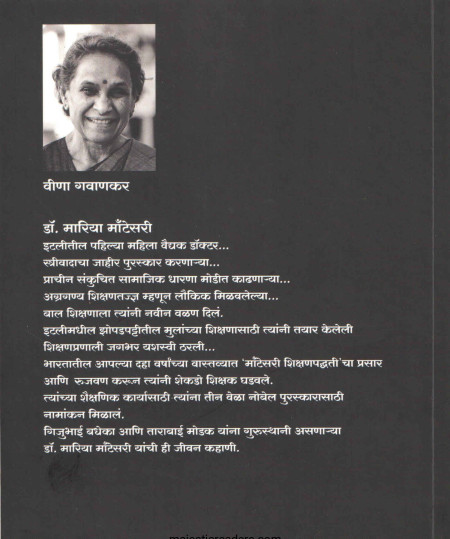 वीणा गवाणकर
डॉ. मारिया माँटेसरी
इटलीतील पहिल्या महिला वैद्यक डॉक्टर...
स्त्रीवादाचा जाहीर पुरस्कार करणाऱ्या...
प्राचीन संकुचित सामाजिक धारणा मोडीत काढणाऱ्या...
अग्रगण्य शिक्षणतज्ज्ञ म्हणून लौकिक मिळवलेल्या...
बाल शिक्षणाला त्यांनी नवीन वळण दिलं.
इटलीमधील झोपडपट्टीतील मुलांच्या शिक्षणासाठी त्यांनी तयार केलेली
शिक्षणप्रणाली जगभर यशस्वी ठरली...
भारतातील आपल्या दहा वर्षांच्या वास्तव्यात 'माँटेसरी शिक्षणपद्धती'चा प्रसार
आणि रुजवण करून त्यांनी शेकडो शिक्षक घडवले.
त्यांच्या शैक्षणिक कार्यासाठी त्यांना तीन वेळा नोबेल पुरस्कारासाठी
नामांकन मिळालं.
गिजुभाई बधेका आणि ताराबाई मोडक यांना गुरुस्थानी असणाऱ्या
डॉ. मारिया माँटेसरी यांची ही जीवन कहाणी.